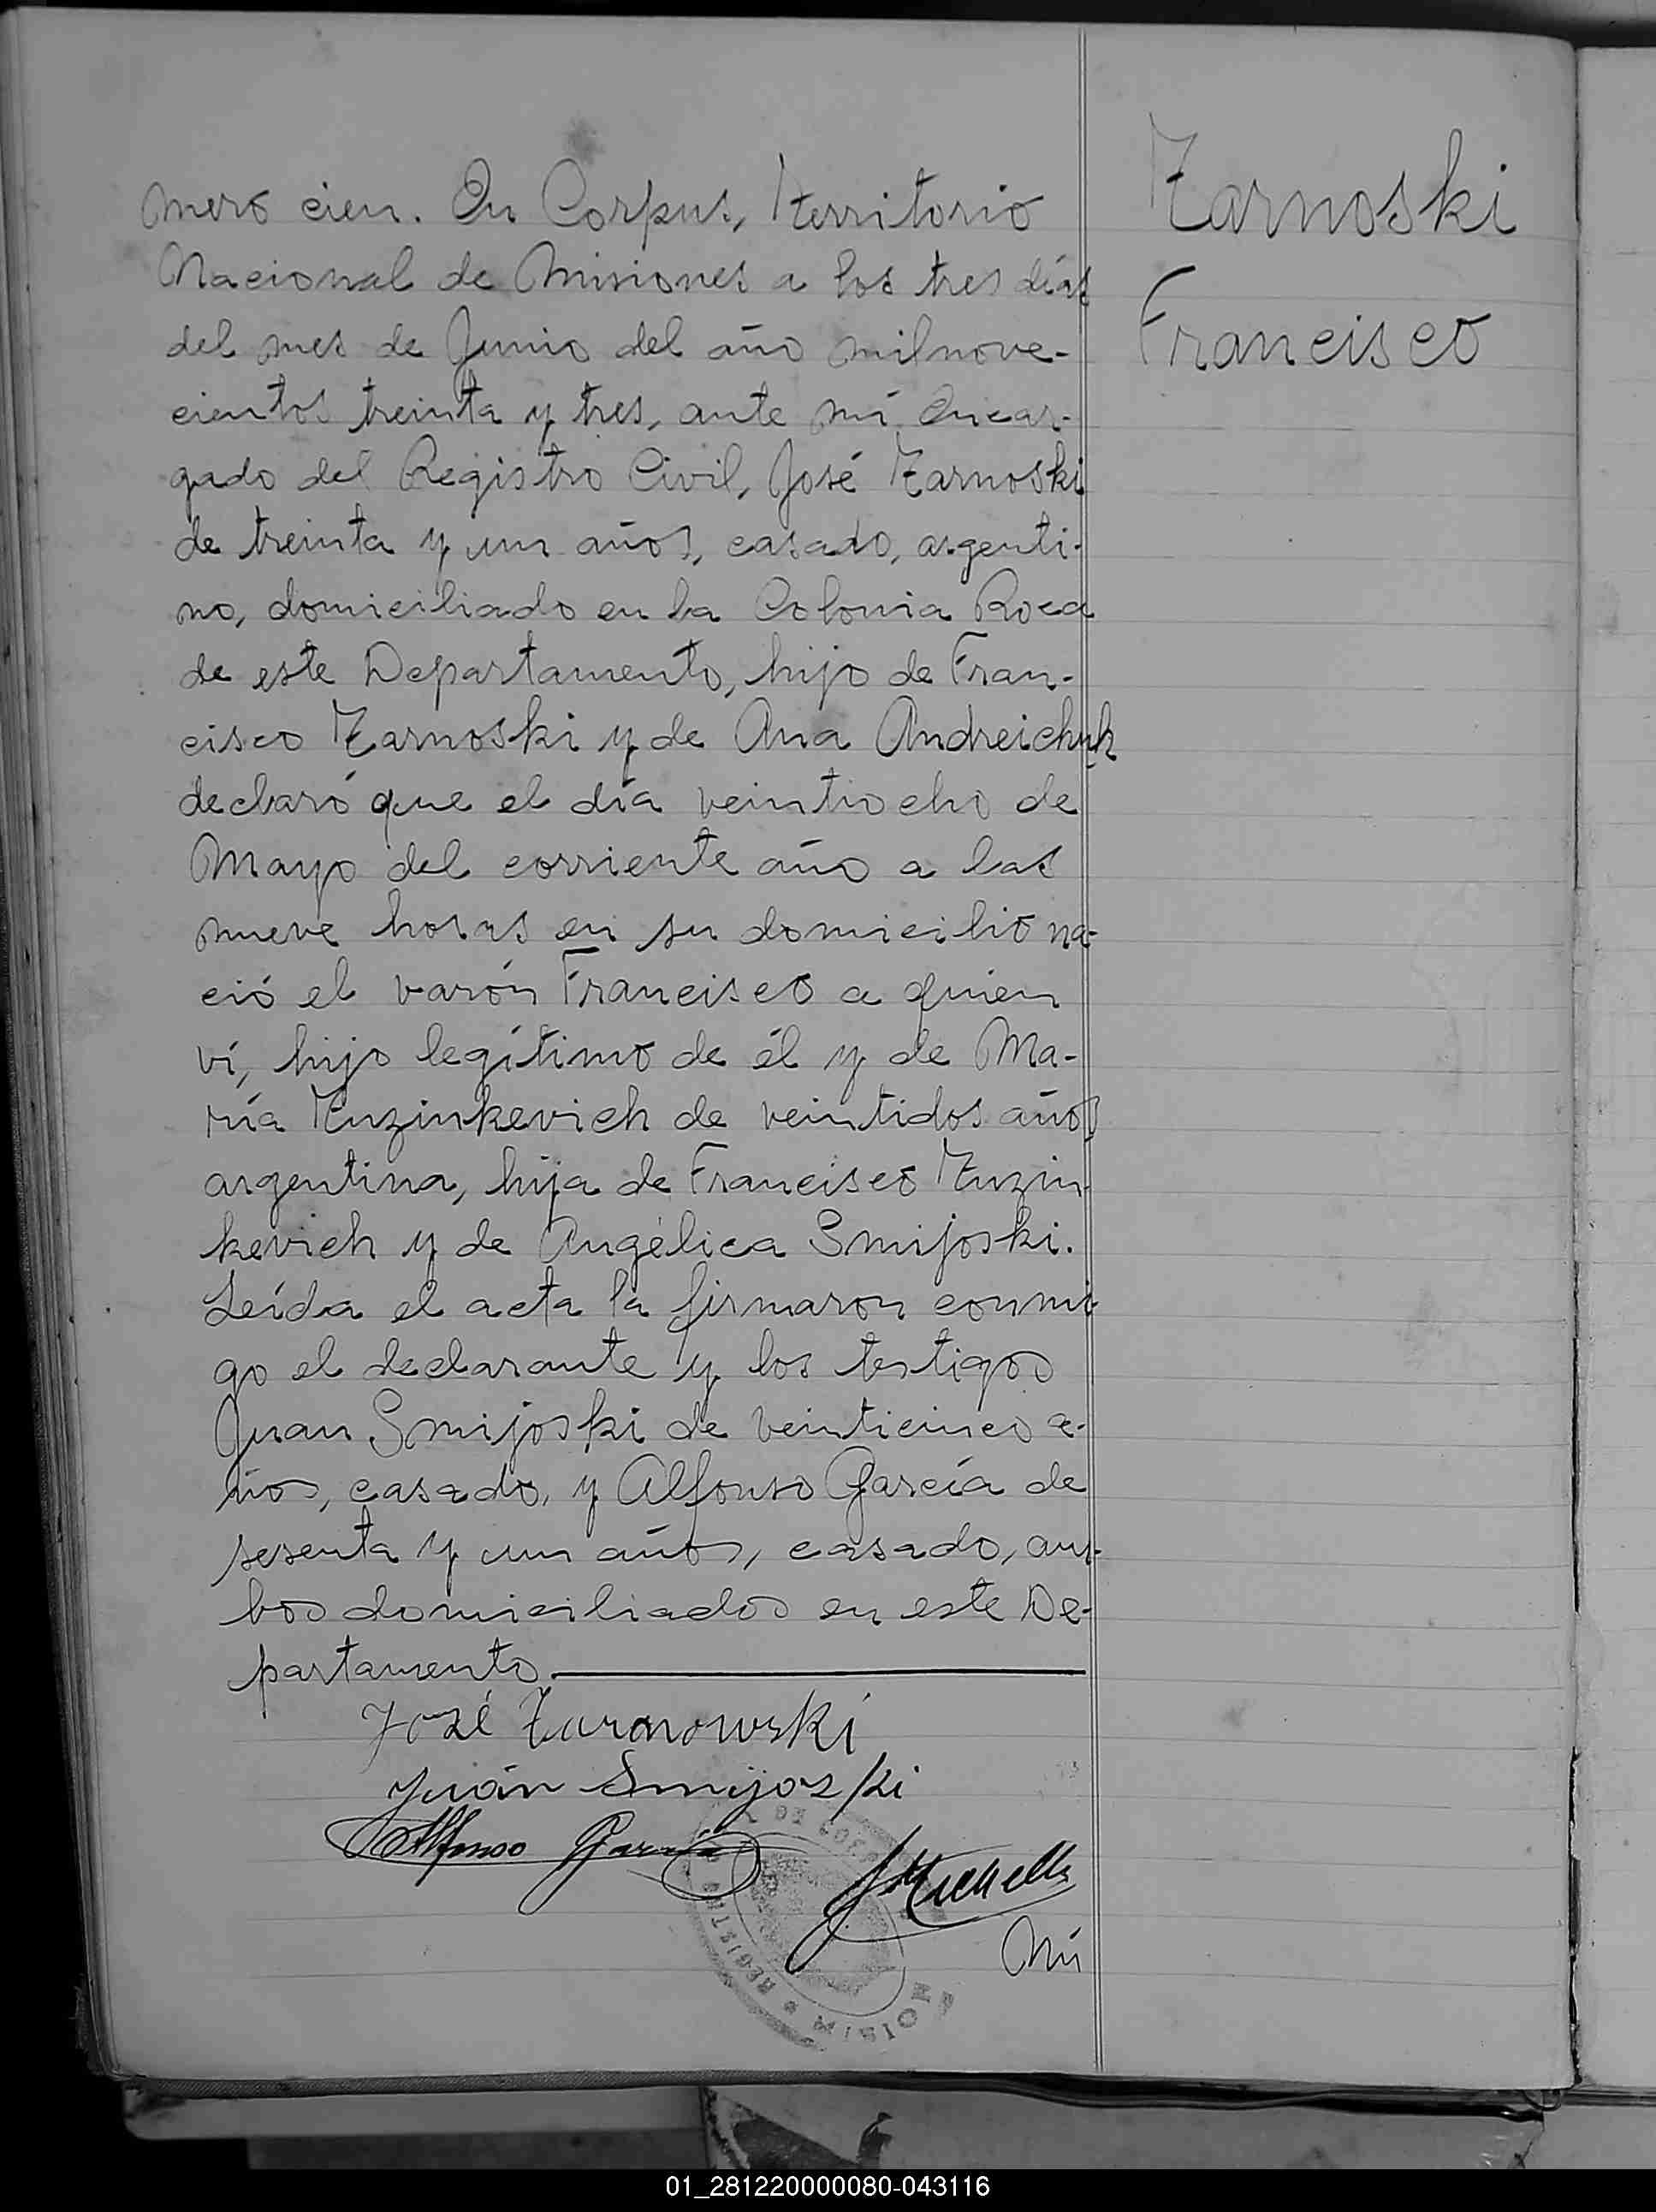 mero cien. En Corpus, Territorio
Nacional de Misiones a los tres días
del mes de Junio del año milnove-
cientos treinta y tres, ante mí Encar-
gado del Registro Civil, José Tarnoski
de treinta y un años, casado, argenti-
no, domiciliado en la Colonia Roca
de este Departamento, hijo de Fran-
cisco Tarnoski y de Ana Andreichuk
declaró que el día veintiocho de
Mayo del corriente año a las
nueve horas en su domicilio na-
ció el varón Francisco a quien
ví, hijo legítimo de él y de Ma-
ría Tuzinkevich de veintidos años
argentina, hija de Francisco Tuzin-
kevich y de Angélica Smijoski.
Leída el acta la firmaron conmi-
go el declarante y los testigos
Juan Smijoski de veinticinco a-
ños, casado, y Alfonso García de
sesenta y un años, casado, am-
bos domiciliados en este De-
partamento.
José Tarnowski
Juán Smijoski
Alfonso García
Nú
Tarnoski
Francisco
REGISTRO
01_281220000080-043116